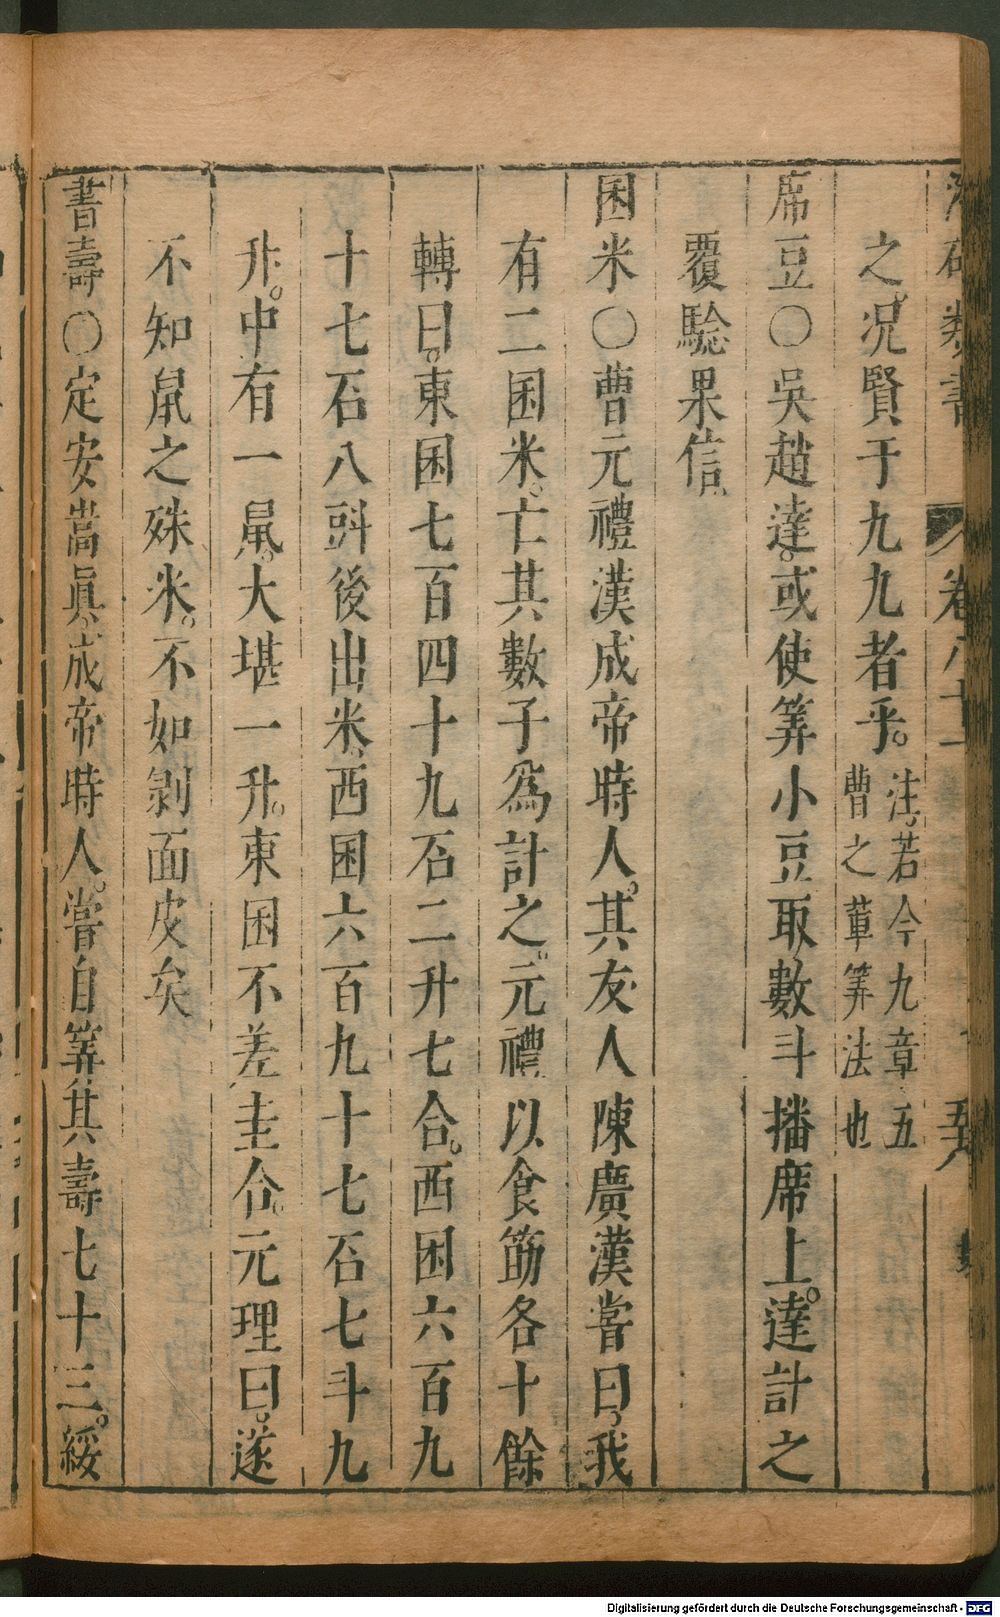 類書
卷八十一
之。况賢于九九者乎。注。若今九章五曹之軰筭法也
席豆〇吳趙達。或使筭小豆取數斗播席上。達計之
覆騐果信、
囷米〇曹元禮漢成帝時人。其友人陳廣漢嘗曰、我
有二囷米。亡其數子爲計之。元禮以食筯各十餘
轉曰。東囷七百四十九石二升七合。西囷六百九
十七石八㪷後出米、西囷六百九十七石七斗九
升。中有一䑕。大堪一升。東囷不差圭合。元理曰。遂
不知䑕之殊米。不如剝面皮矣
書壽〇定安嵩眞、成帝時人。嘗自筭其壽七十三。綏
Digitalisierung gefördert durch die Deutsche Forschungsgemeinschaft - DFG